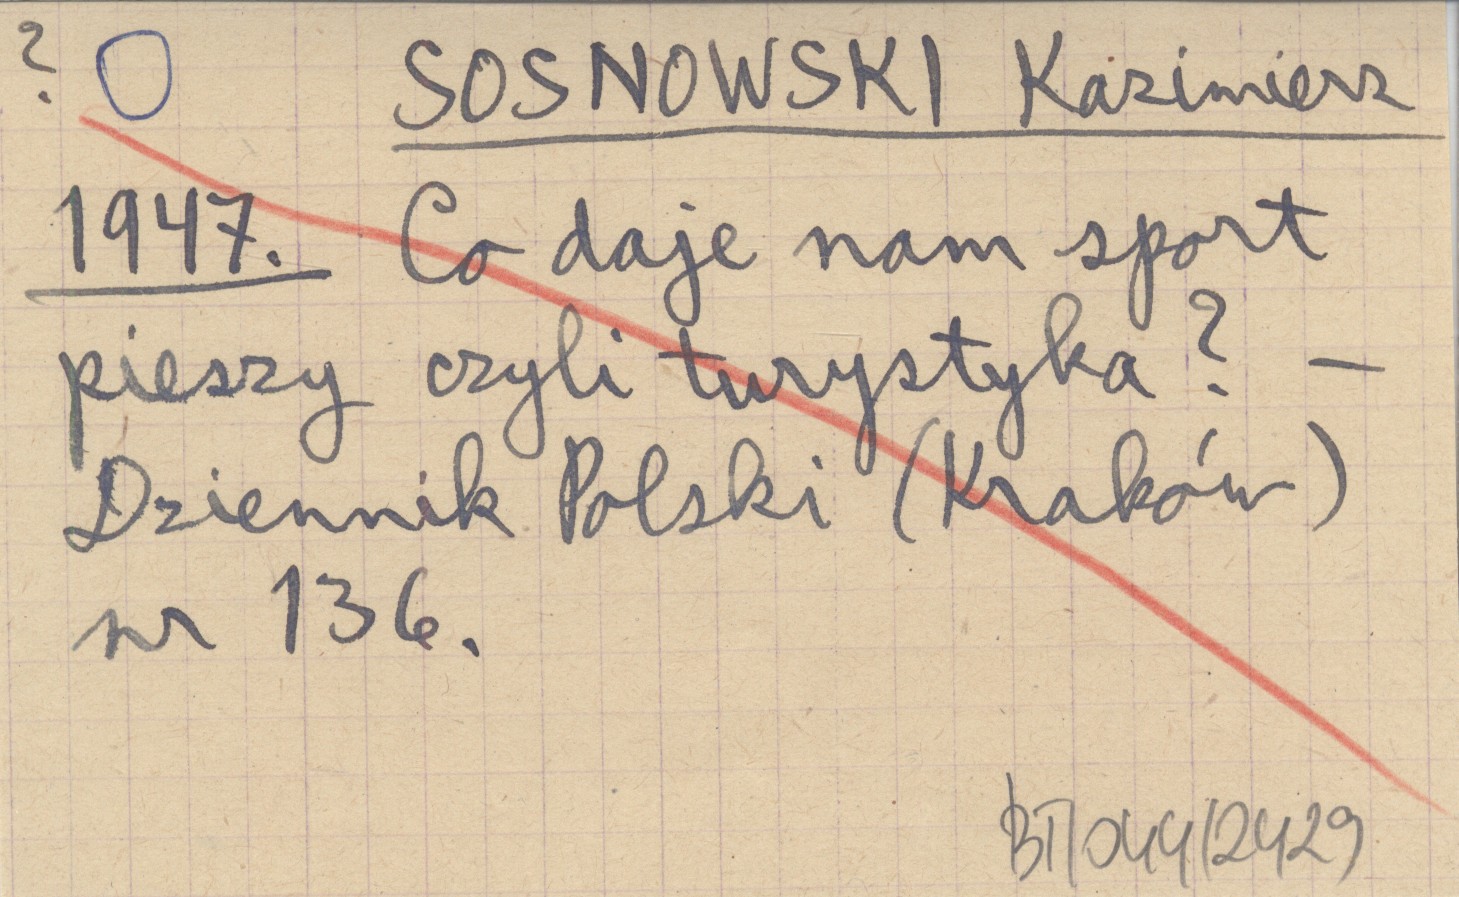 ? O SOSNOWSKI Kazimierz
1947. Co daje nam sport
pieszy czyli turystyka? —
Dziennik Polski (Kraków)
nr 136.
BT/044/2429